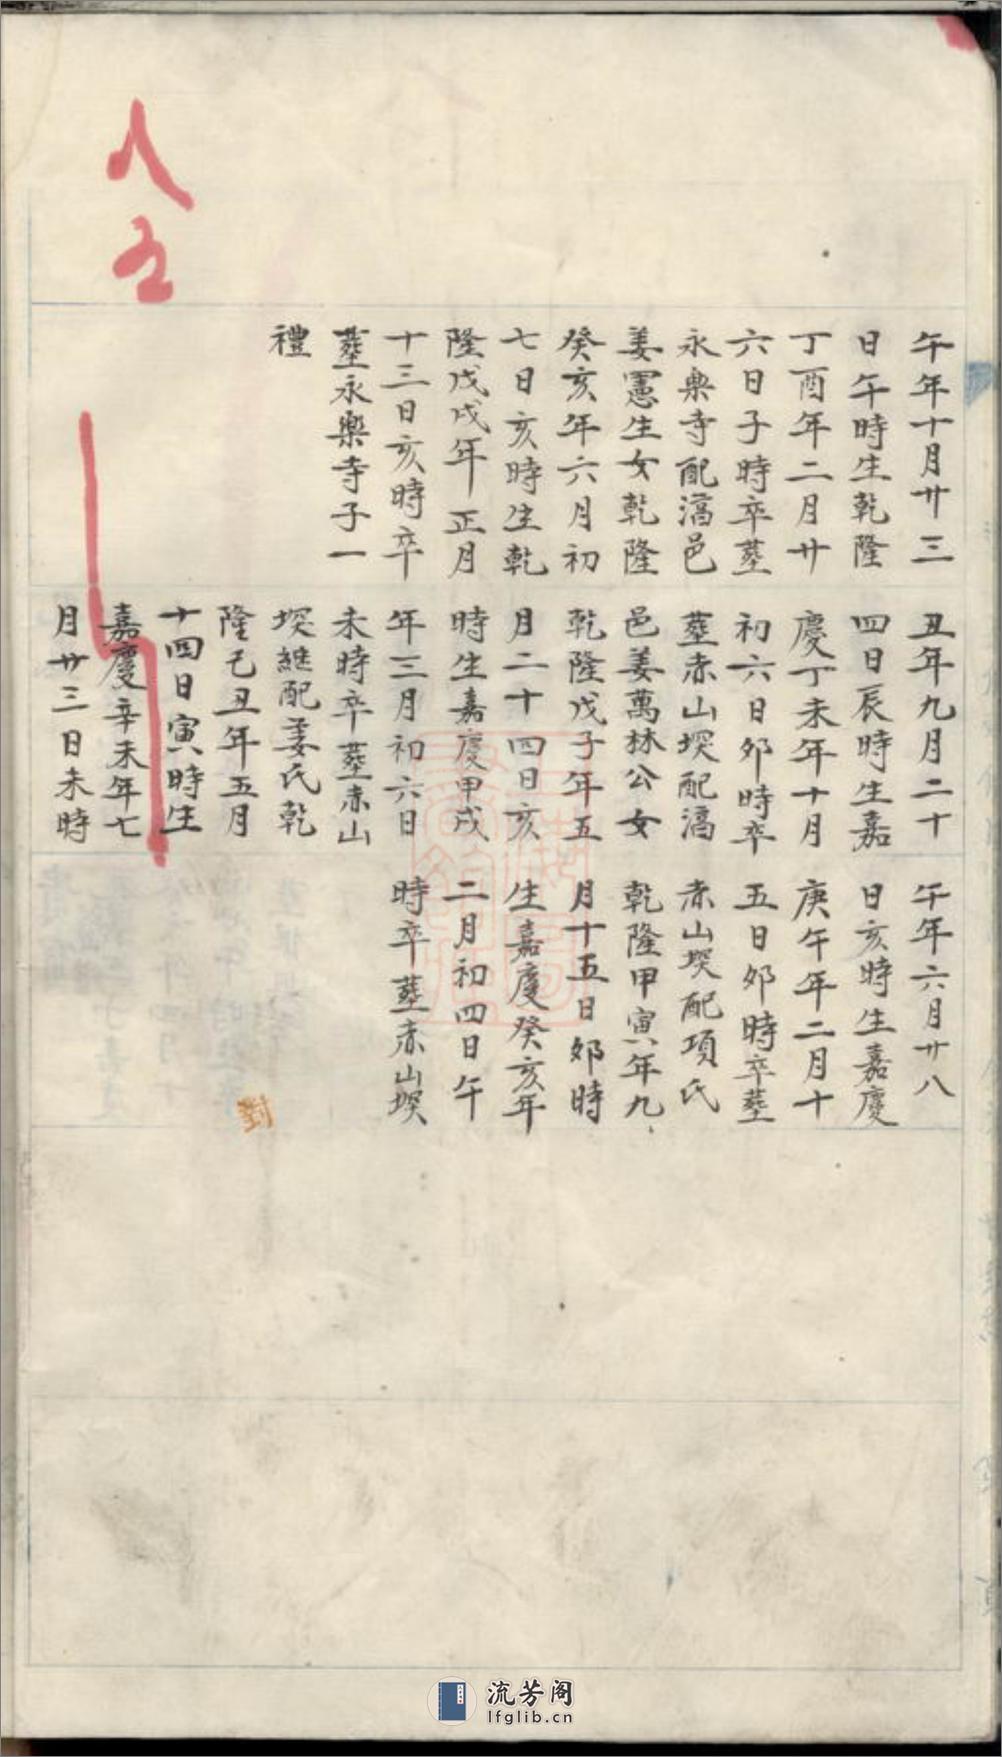 午年十月廿三
日午時生乾隆
丁酉年二月廿
六日子時卒塟
永樂寺配濇邑
姜憲生女乾隆
癸亥年六月初
七日亥時生乾
隆戊戌年正月
十三日亥時卒
塟永樂寺子一
禮
丑年九月二十
四日辰時生嘉
慶丁未年十月
初六日夘時卒
塟赤山堗配濇
邑姜萬林公女
乾隆戊子年五
月二十四日亥
時生嘉慶甲戌
年三月初六日
未時卒塟赤山
堗継配姜氏乾
隆己丑年五月
十四日寅時生
嘉慶辛未年七
月廿三日未時
午年六月廿八
日亥時生嘉慶
庚午年二月十
五日夘時卒塟
赤山堗配項氏
乾隆甲寅年九
月十五日夘時
生嘉慶癸亥年
二月初四日午
時卒塟赤山堗
流芳阁
lfglib.cn